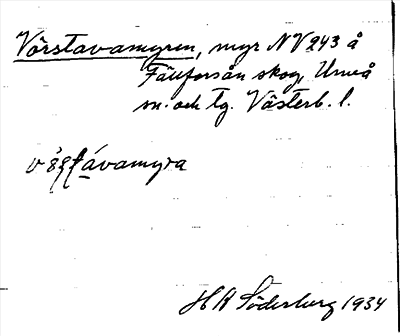 Vörstavamyren, myr NV 243 å
Fällforsån skog, Umeå
sn. och tg. Västerb. l.
H K Söderberg 1934